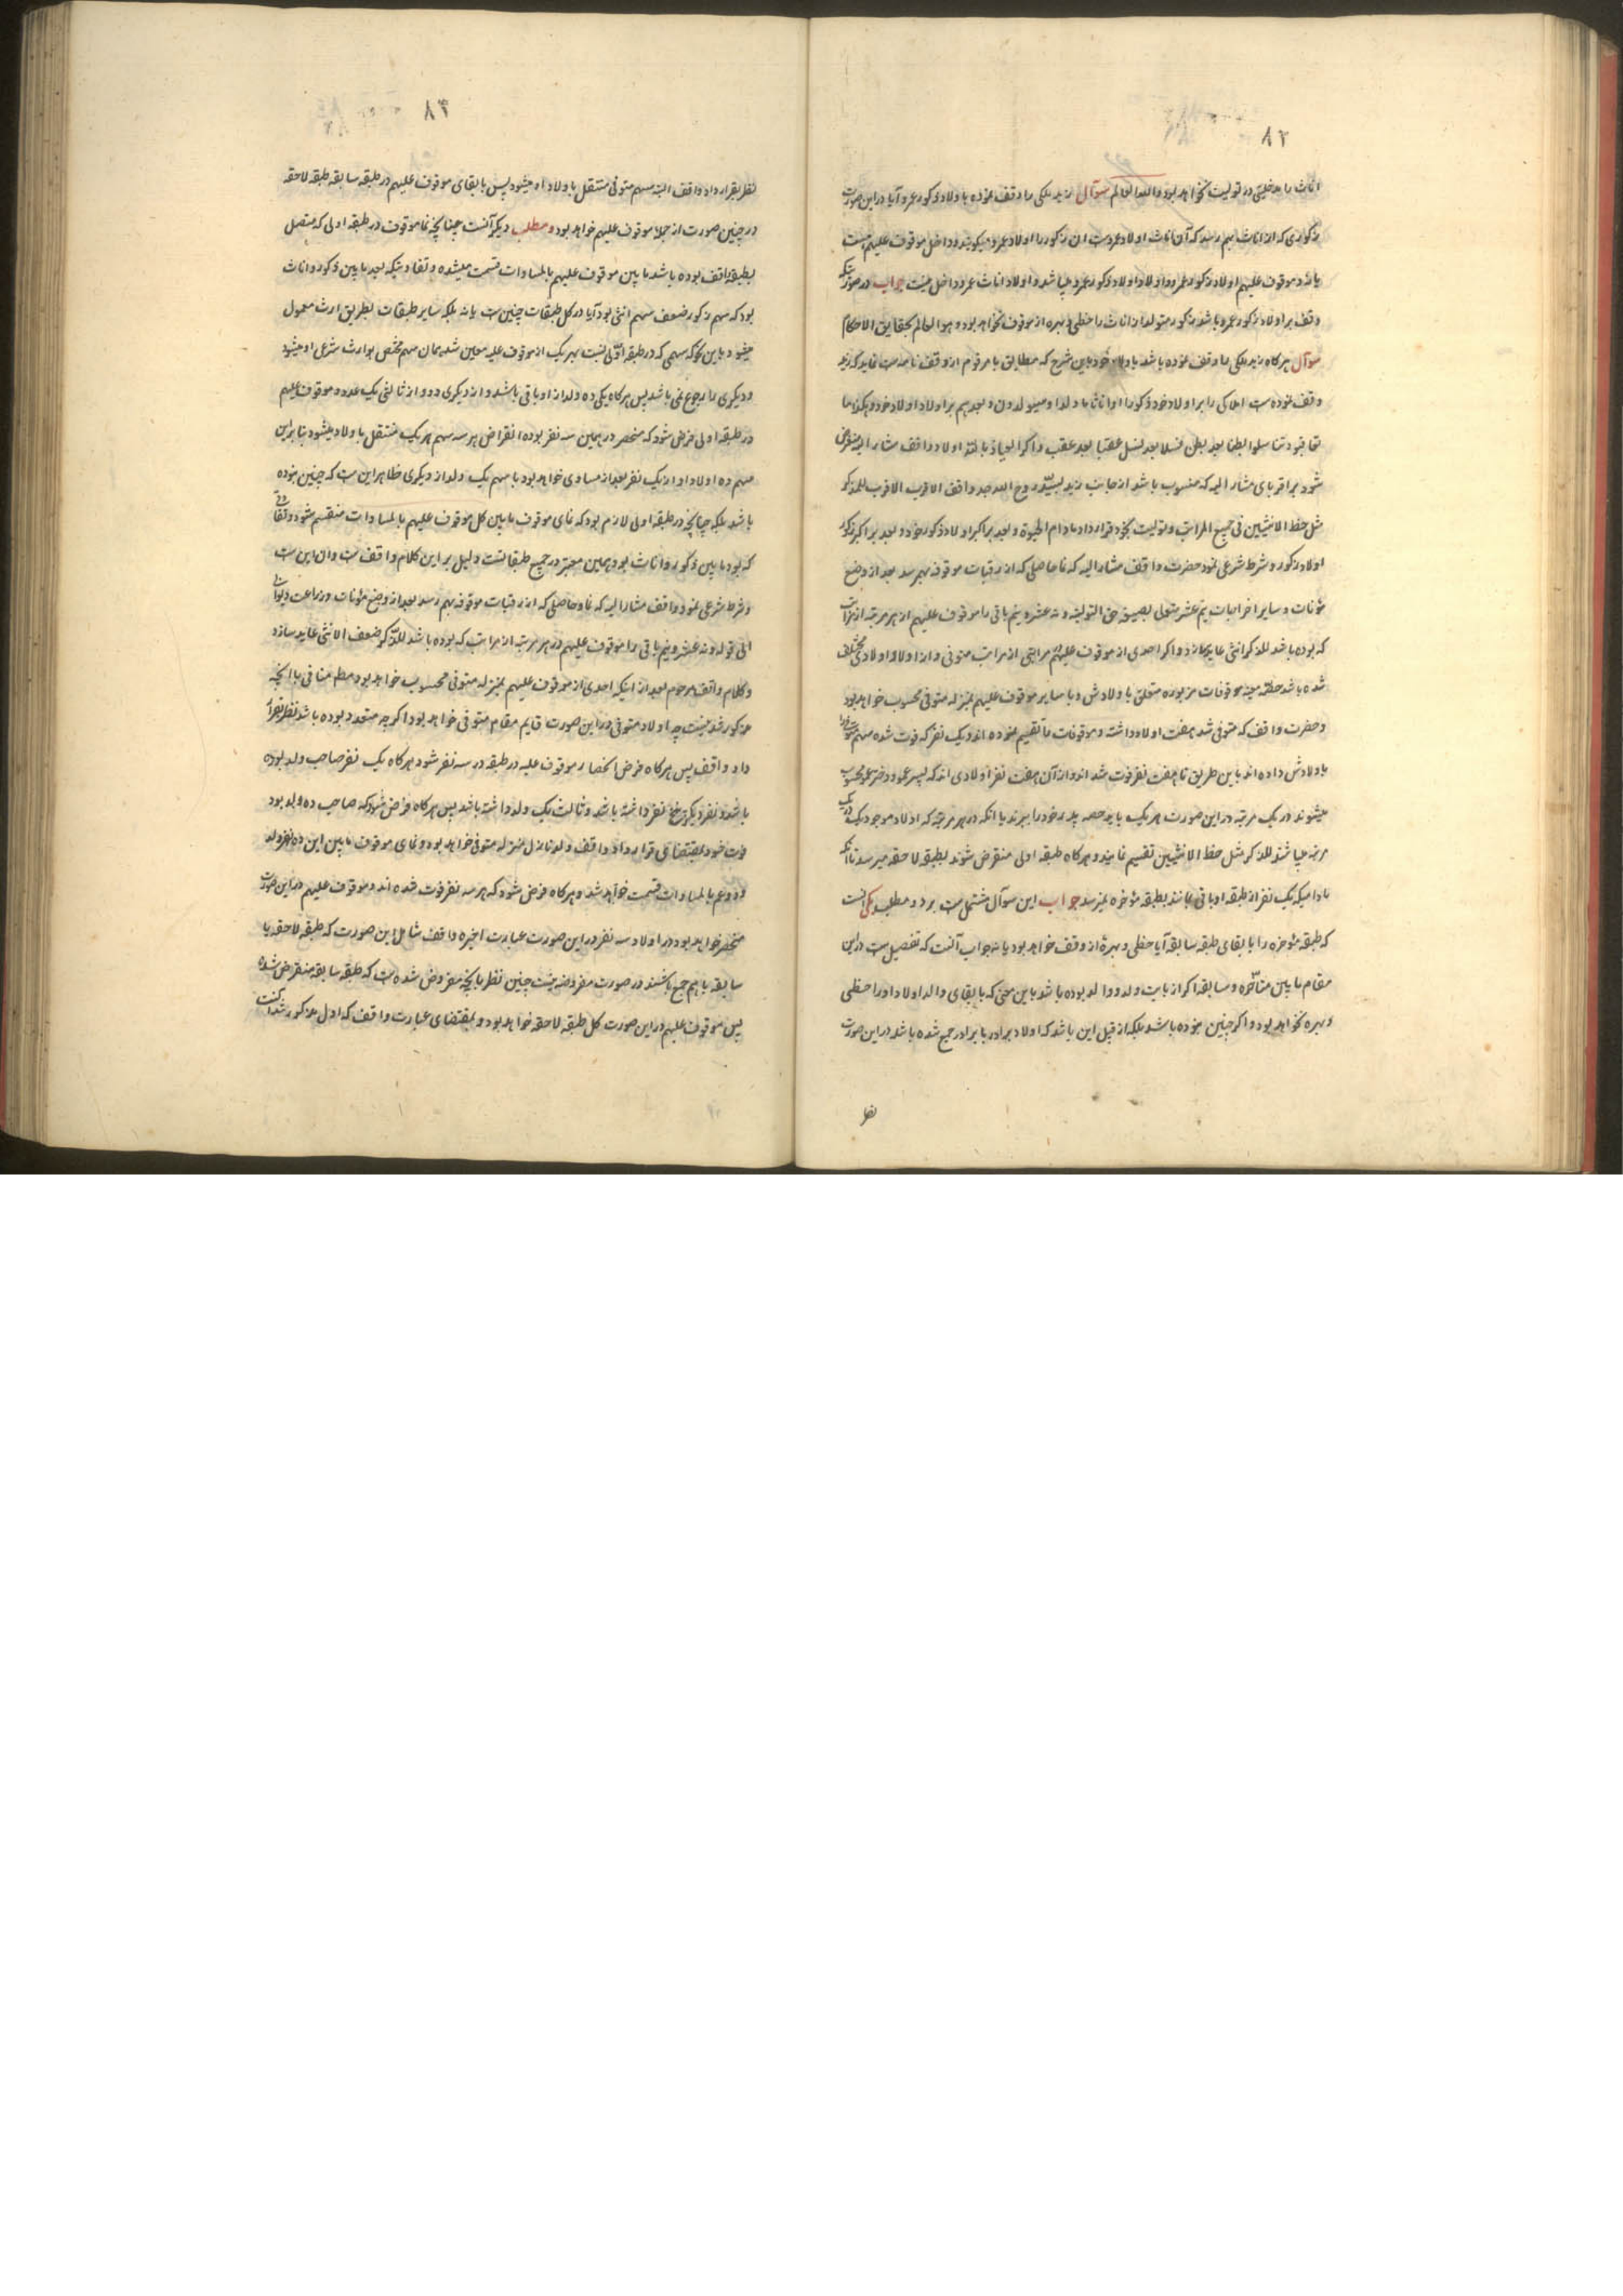 ۸۲
اناث را مدخلیتی در تولیت نخواهد بود والله العالم سوآل زید ملکی را وقف نموده باولاد ذکور عمرو آیا در این صورت
ذکوری که از اناث بهم رسد که آن اناث اولاد عمروست ان ذکور را اولاد عمرو میکویند و داخل موقوف علیهم است
یا نه و موقوف علیهم اولاد ذکور عمرو و اولاد اولاد ذکور عمرو میباشد و اولاد اناث عمرو داخل نیست جواب در صورتیکه
وقف بر اولاد ذکور عمرو باشد ذکور متولد از اناث را حظی و بهره از موقوف نخواهد بود و هو العالم بحقایق الاحکام
سوآل هرکاه زید ملکی را وقف نموده باشد باولاد خود باین شرح که مطابق با مرقوم از وقف نامه ست نماید که زید
وقف نموده ست املاکی را بر اولاد خود ذکورا او اناثا ما ولدا و سیولدون و بعدهم بر اولاد اولاد خود و هکذا ما
تعاقبوا و تناسلوا بطنا بعد بطن نسلا بعد نسل عقبا بعد عقب و اکر العیاذ بالله اولاد واقف مشار الیه منقرض
شود بر اقربای مشار الیه که منسوب باشد از جانب زید روح الله جد واقف الاقرب الاقرب للذکر
مثل حظ الانثیین فی جمیع المراتب و تولیت بخود قرار داد مادام الحیوة و بعد بر اکبر اولاد ذکور خود و بعد بر اکبر ذکور
اولاد ذکور و شرط شرعی نمود حضرت واقف مشار الیه که نما حاصلی که از رقبات موقوفه بهم رسد بعد از وضع
مؤنات و سایر اخراجات نیم عشر متولی بصیغه حق التولیه و نه عشر و نیم باقی را موقوف علیهم از هر مرتبه از مراتب
که بوده باشد للذکر انثی عاید سازد و اکر احدی از موقوف علیهم مراتبی از مراتب متوفی و از او اولاد و اولادی مخلف
شده باشد حصه موقوفات مزبوره متعلق باولادش و با سایر موقوف علیهم بمنزله متوفی محسوب خواهد بود
و حضرت واقف که متوفی شد هفت اولاد داشته و موقوفات را تقسیم نموده اند و یک نفر که فوت شده سهم
باولادش داده اند باین طریق تا هفت نفر فوت شد اند و از آن هفت نفر اولادی اند که پسر عمو و دختر عمو محسوب
میشوند در یک مرتبه در این صورت هر یک باید حصه پدر خود را ببرند یا انکه در هر مرتبه که اولاد موجود
مرتبه میباشند للذکر مثل حظ الانثیین تقسیم نمایند و هرکاه طبقه اولی منقرض شوند بطبقه لاحقه میرسد
مادامیکه یک نفر از طبقه او باقی بماند بطبقه مؤخره نمیرسد جواب این سوآل مشتمل ست بر دو مطلب یکی انست
که طبقه مؤخره را با بقای طبقه سابقه آیا حظی و بهره از وقف خواهد بود یا نه جواب آنست که تفصیل ست در این
مقام ما بین متأخره و سابقه اکر از بابت ولد و والد بوده باشد باین معنی که با بقای والد اولاد او را حظی
و بهره نخواهد بود و اکر چنین نبوده باشد بلکه از قبیل این باشد که اولاد برادر با برادر جمع شده باشد در این صورت
نظر
۸۳
نظر بقرار داد واقف البته سهم متوفی منتقل باولاد او میشود پس با بقای موقوف علیهم در طبقه سابقه طبقه لاحقه
در چنین صورت از جمله موقوف علیهم خواهد بود و مطلب دیکر آنست چنانچه نما موقوف در طبقه اولی که متصل
بطبقه واقف بوده باشد ما بین موقوف علیهم بالمساوات قسمت میشده و تفاوتیکه بعد ما بین ذکور و اناث
بود که سهم ذکور ضعف سهم انثی بود آیا در کل طبقات چنین ست یا نه بلکه سایر طبقات بطریق ارث معمول
میشود باین نحو که سهمی که در طبقه اولی نسبت بهر یک از موقوف علیه معین شد همان سهم مختص بوارث شرعی او میشود
و دیکری را رجوع نمی باشد پس هرکاه یکی ده ولد از او باقی باشد و از دیکری دو و از ثالثی یک عدد و موقوف علیهم
در طبقه اولی فرض شود که منحصر در همین سه نفر بوده انقراض هر سه سهم هر یک منتقل باولاد میشود بنا براین
سهم ده اولاد او از یک نفر بعد از مساوی خواهد بود با سهم یک ولد از دیکری ظاهر این ست که چنین نبوده
باشد بلکه چنانچه در طبقه اولی لازم بود که نمای موقوف ما بین کل موقوف علیهم بالمساوات منقسم شود و تفاوتی
که بود ما بین ذکور و اناث بود همین معتبر در جمیع طبقاتست دلیل بر این کلام واقف ست و ان این ست
و شرط شرعی نمود واقف مشار الیه که نما و حاصلی که از رقبات موقوفه بهم رسد بعد از وضع مؤنات و زراعت
الی قوله و نه عشر و نیم باقی را موقوف علیهم در هر مرتبه از مراتب که بوده باشد للذکر ضعف الانثی عاید سازد
و کلام واقف مرحوم بعد از اینکه احدی از موقوف علیهم بمنزله متوفی محسوب خواهد بود مطم منافی با انچه
مذکور شد نیست چه اولاد متوفی در این صورت قایم مقام متوفی خواهد بود اکرچه متعدد بوده باشد نظر بقرار
داد واقف پس هرکاه فرض انحصار موقوف علیه در طبقه در سه نفر شود هرکاه یک نفر صاحب ده ولد بوده
باشد و نفر دیکر پنج نفر داشته باشد و ثالث یک ولد داشته باشد پس هرکاه فرض شود که صاحب ده ولد بود
فوت شود بمقتضای قرار داد واقف ولد نازل منزله متوفی خواهد بود و نمای موقوف ما بین این ده نفر ولد
و دو عم بالمساوات قسمت خواهد شد و هرکاه فرض شود که هر سه نفر فوت شده اند و موقوف علیهم در این صورت
منحصر خواهد بود در اولاد سه نفر در این صورت عبارت اخیره واقف شامل این صورت که طبقه لاحقه با
سابقه با هم جمع باشند در صورت مفروضه نیست چنین نظر بانچه مفروض شده ست که طبقه سابقه منقرض شده
پس موقوف علیهم در این صورت کل طبقه لاحقه خواهد بود و بمقتضای عبارت واقف که اول مذکور شد آنست